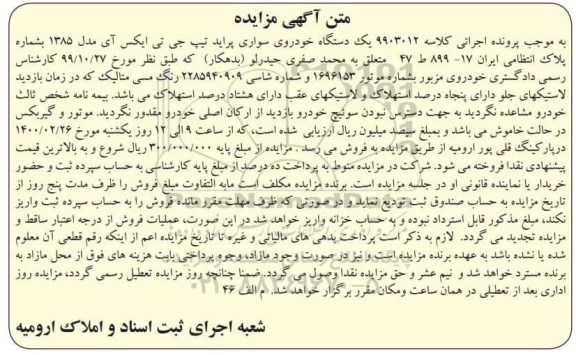 متن آگهی مزایده
به موجب پرونده اجرائی کلاسه ۹۹۰۳۰۱۲ یک دستگاه خودروی سواری پراید تیپ جی تی ایکس آی مدل ۱۳۸۵ بشماره
پلاک انتظامی ایران ۱۷- ۸۹۹ ط ۲۷ متعلق به محمد صفری حیدرلو (بدهکار) که طبق نظر مورخ ۹۹/۱۰/۲۷ کارشناس
رسمی دادگستری خودروی مزبور بشماره موتور ۱۶۹۶۱۵۳ و شماره شاسی ۲۲۸۵۹۴۰۹۰۹ رنگ مسی متالیک که در زمان بازدید
لاستیکهای جلو دارای پنجاه درصد استهلاک و لاستیکهای عقب دارای هشتاد درصد استهلاک می باشد. بیمه نامه شخص ثالث
خودرو مشاهده نگردید به جهت دسترس نبودن سوئیچ خودرو بازدید از ارکان اصلی خودرو مقدور نگردید. موتور و گیربکس
در حالت خاموش می باشد و بمبلغ سیصد میلیون ریال ارزیابی شده است، که از ساعت ۹ الی ۱۲ روز یکشنبه مورخ ۱۴۰۰/۰۲/۲۶
درپارکینگ قلی پور ارومیه از طریق مزایده به فروش می رسد . مزایده از مبلغ پایه ۳۰۰/۰۰۰/۰۰۰ ریال شروع و به بالاترین قیمت
پیشنهادی نقدا فروخته می شود. شرکت در مزایده منوط به پرداخت ده درصد از مبلغ پایه کارشناسی به حساب سپرده ثبت و حضور
خریدار یا نماینده قانونی او در جلسه مزایده است. برنده مزایده مکلف است مابه التفاوت مبلغ فروش را ظرف مدت پنج روز از
تاریخ مزایده به حساب صندوق ثبت تودیع نماید و در صورتی که ظرف مهلت مقرر مانده فروش را به حساب سپرده ثبت واریز
نکند، مبلغ مذکور قابل استرداد نبوده و به حساب خزانه واریز خواهد شد در این صورت، عملیات فروش از درجه اعتبار ساقط و
مزایده تجدید می گردد. لازم به ذکر است پرداخت بدهی های مالیاتی و غیره تا تاریخ مزایده اعم از اینکه رقم قطعی آن معلوم
شده یا نشده باشد به عهده برنده مزایده است و نیز در صورت وجود مازاد، وجوه پرداختی بابت هزینه های فوق از محل مازاد به
برنده مسترد خواهد شد و نیم عشر و حق مزایده نقدا وصول می گردد. ضمنا چنانچه روز مزایده تعطیل رسمی گردد، مزایده روز
اداری بعد از تعطیلی در همان ساعت ومکان مقرر برگزار خواهد شد. م الف ۴۶
شعبه اجرای ثبت اسناد و املاک ارومیه